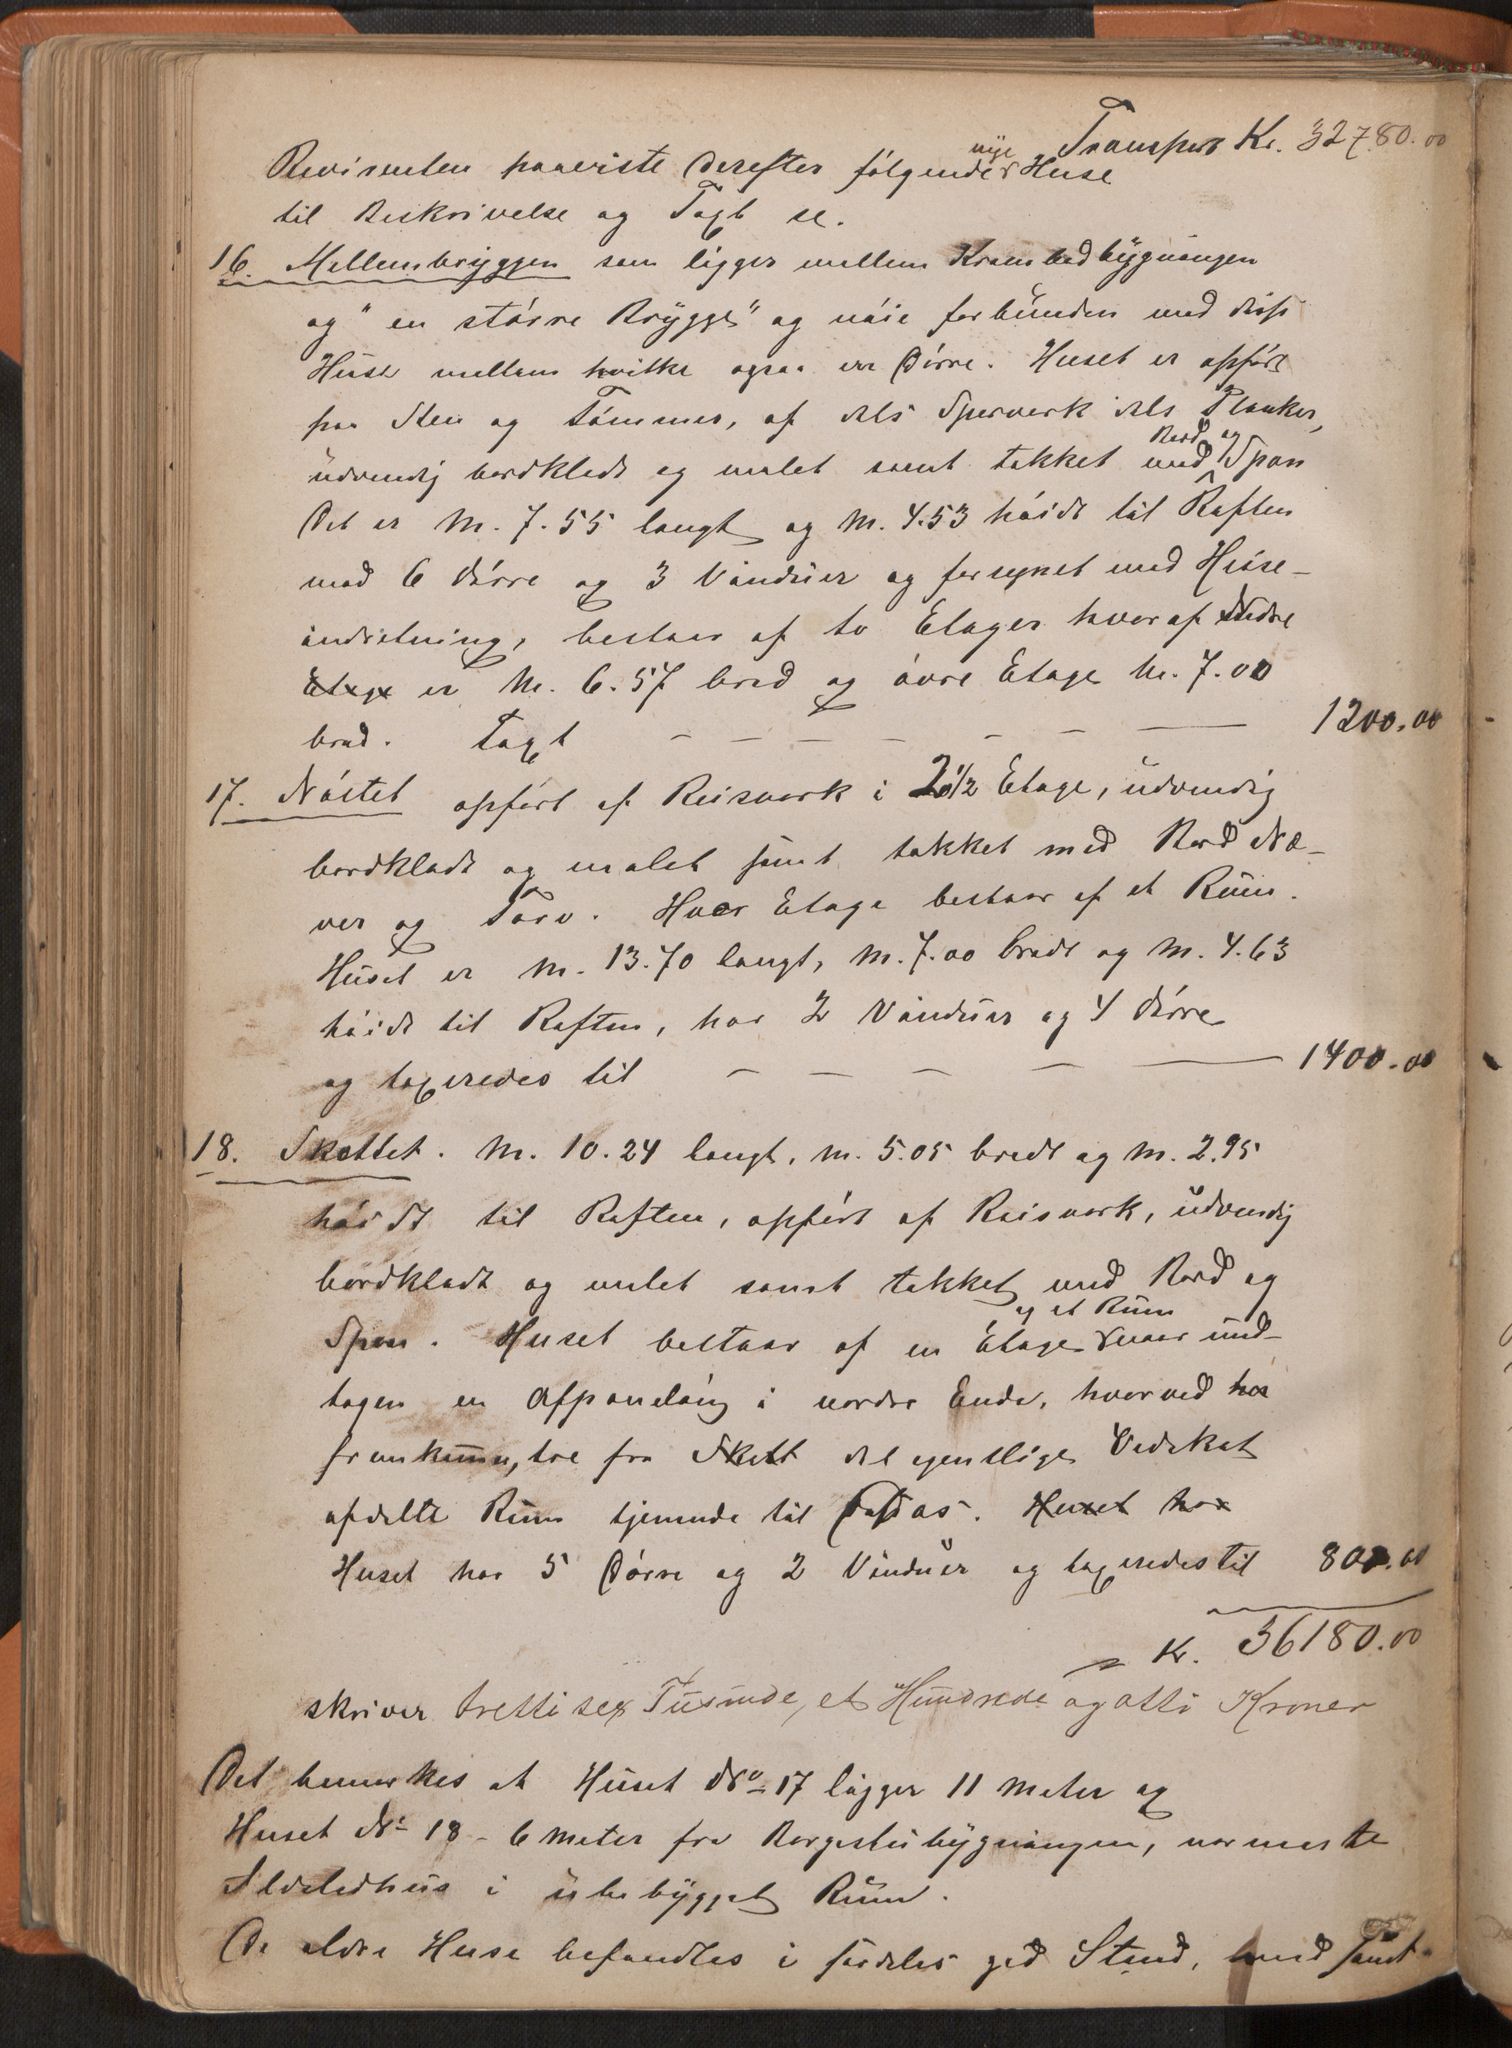 Transport Kr. 32780.00
Revirenten paaviste derefter følgende nye Huse
til Beskrivelse og Taxt se.
16. Mellembryggen som ligger mellem Krambodbygningen
og "en større Brygge" og nøie forbunden med disse
Huse mellem hvilke ogsaa er Dørre. Huset er opført
paa Sten og Tømmer, af dels Sperverk dels Planker,
udvendig bordkledt og malet samt tekket med Bord og Spon
Det er M. 7.55 langt og M. 4.53 høidt til Raften
med 6 Dørre og 3 Vinduer og forsynet med Heise-
indretning, bestaar af to Etager hvoraf Nedre
Etage er M. 6.57 bred og øvre Etage M. 7.00
bred. Taxt — — — — — — — 1200.00
17. Nøstet opført af Reisverk i 2 1/2 Etage, udvendig
bordkledt og malet samt tekket med Bord Næ-
ver og Torv. Hver Etage bestaar af et Rum.
Huset er M. 13.70 langt, M. 7.00 bredt og M. 4.63
høidt til Raften, har 2 Vinduer og 4 Dørre
og taxeredes til — — — — — 1400.00
18. Skottet. M. 10.24 langt, M. 5.05 bredt og M. 2.95
høidt til Raften, opført af Reisverk, udvendig
bordkledt og malet samt tekket med Bord og
Spon. Huset bestaar af en Etage og et Rum naar und-
tagen en Afpaneling i nordre Ende, hvorved har
fremkommer, tre fra Skott det egentlige Vedskot
afdelte Rum tjenende til Das. Huset har
Huset har 5 Dørre og 2 Vinduer og taxeredes til 800.00
Kr. 36180.00
skriver tretti sex Tusinde, et Hundrede og otti Kroner
Det bemerkes at Huset No 17 ligger 11 Meter og
Huset No 18 - 6 Meter fra Borgestubygningen, nærmeste
Ildstedhus i ubebygget Rum.
De eldre Huse befandtes i særdeles god Stand, med samt-